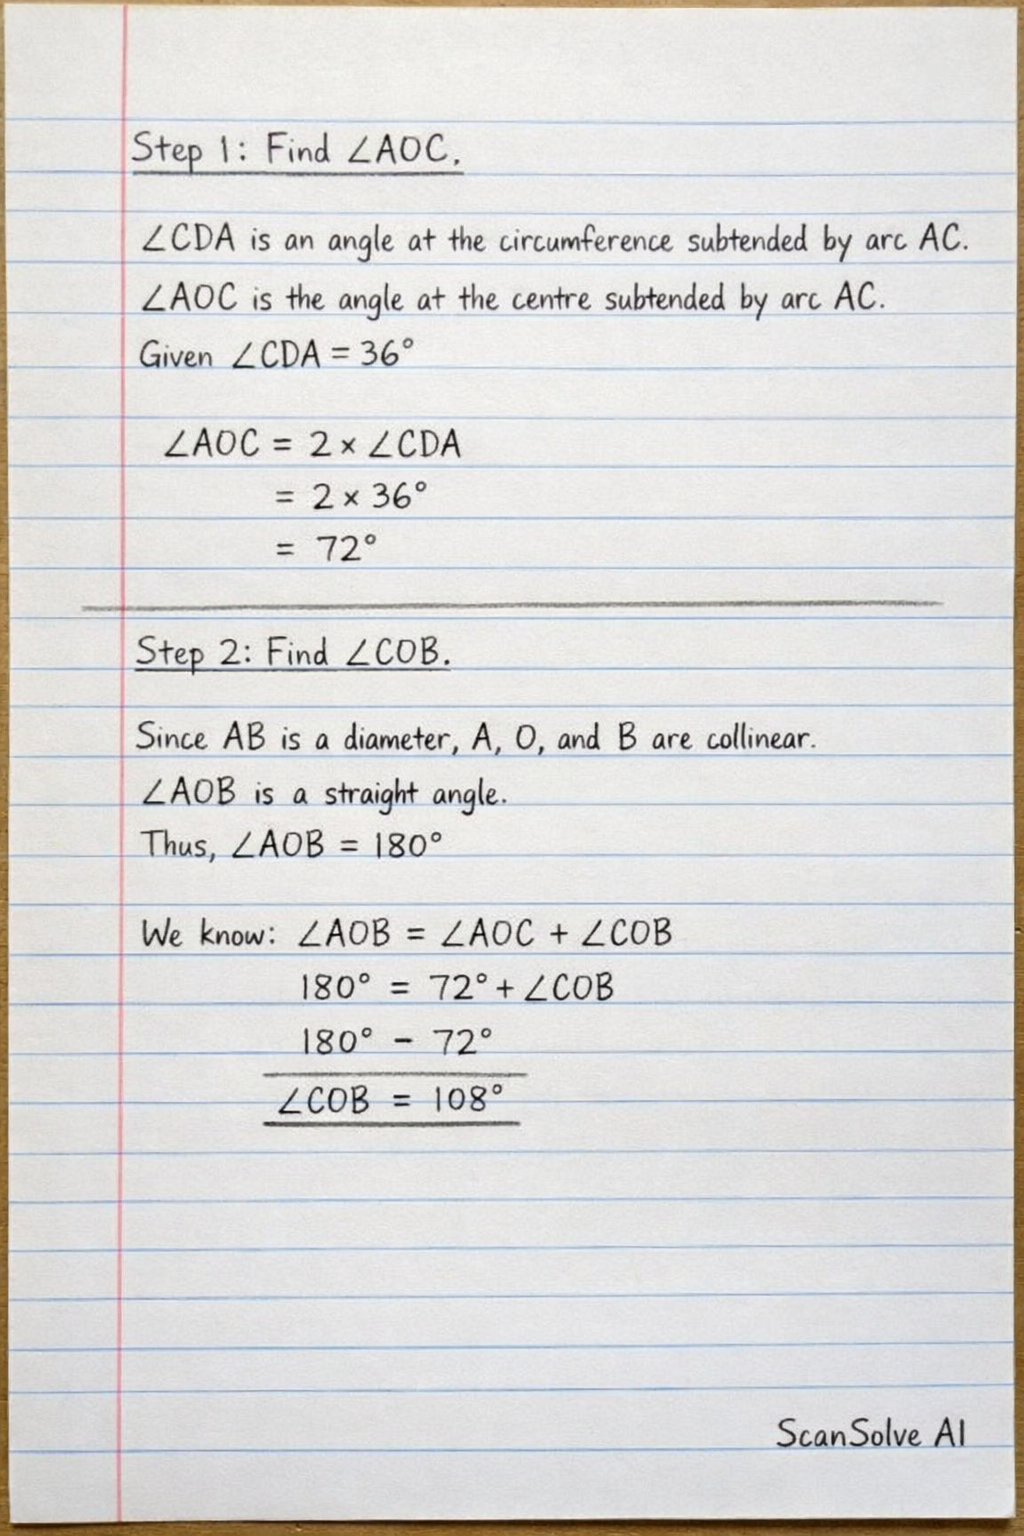 Step 1: Find ∠AOC.
∠CDA is an angle at the circumference subtended by arc AC.
∠AOC is the angle at the centre subtended by arc AC.
Given ∠CDA = 36°
∠AOC = 2 × ∠CDA
= 2 × 36°
= 72°
Step 2: Find ∠COB.
Since AB is a diameter, A, O, and B are collinear.
∠AOB is a straight angle.
Thus, ∠AOB = 180°
We know: ∠AOB = ∠AOC + ∠COB
180° = 72° + ∠COB
180° - 72°
∠COB = 108°
ScanSolve AI